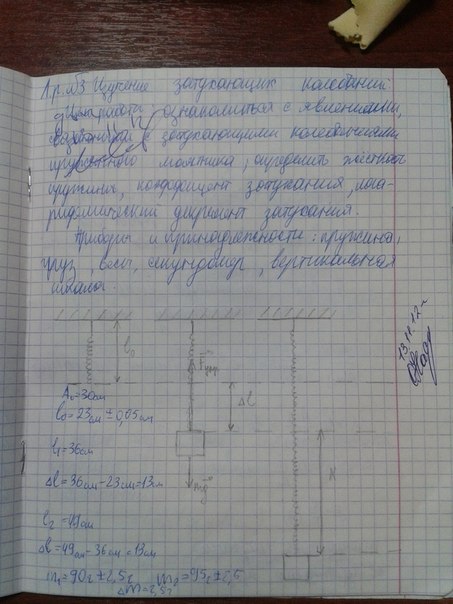 Л.р. №3 Изучение затухающих колебаний
Цель работы: ознакомиться с явлениями,
связанными с затухающими колебаниями
пружинного маятника, определить жесткость
пружины, коэффициент затухания, лога-
рифмический декремент затухания.
Приборы и принадлежности: пружина,
груз, весы, секундомер, вертикальная
шкала.
l₀
Fупр
Δl
A₀=30см
l₀=23см ±0,05см
13.11.12г
l₁=36см
x
Δl=36см-23см=13см
mg
l₂=49см
Δl=49см-36см=13см
m₁=90г±2,5г m₂=95г±2,5
Δm=2,5г